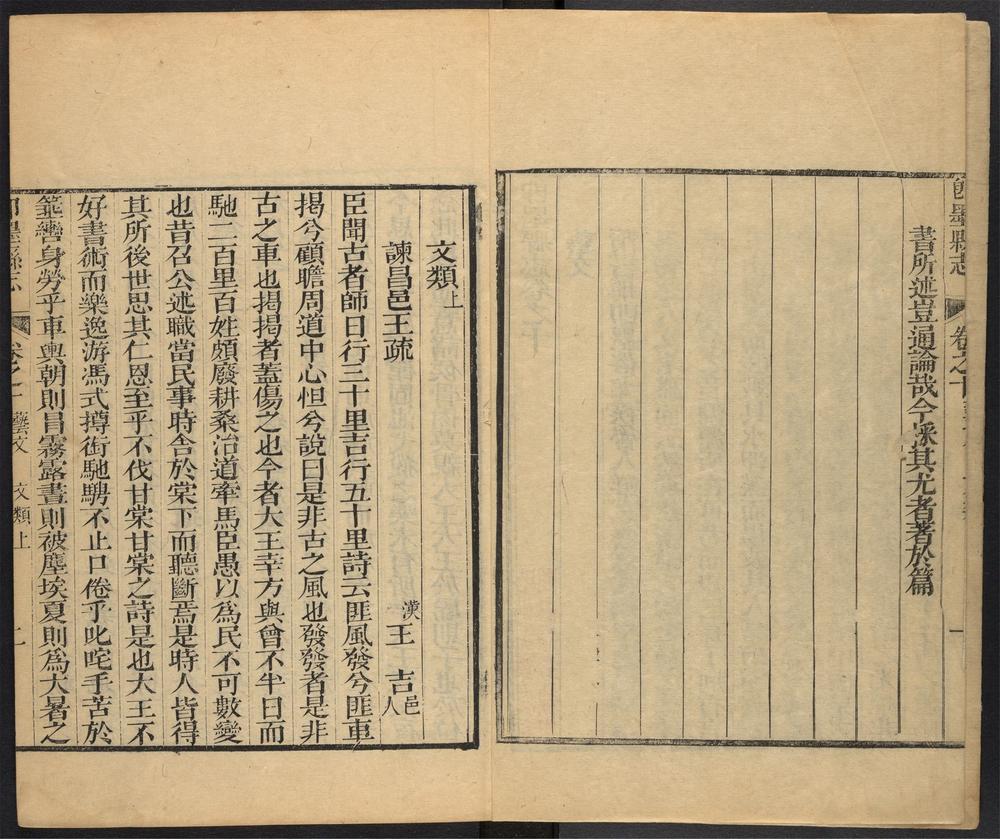 卽墨縣志
卷之十
書所述豈通論哉今採其尤者著於篇
一
文類上
諫昌邑王疏 漢王吉邑人
臣聞古者師日行三十里吉行五十里詩云匪風發兮匪車
揭兮顧瞻周道中心怛兮說曰是非古之風也發發者是非
古之車也揭揭者蓋傷之也今者大王幸方與曾不半日而
馳二百里百姓頗廢耕桑治道牽馬臣愚以爲民不可數變
也昔召公述職當民事時舍於棠下而聽斷焉是時人皆得
其所後世思其仁恩至乎不伐甘棠甘棠之詩是也大王不
好書術而樂逸游馮式撙銜馳騁不止口倦乎叱咤手苦於
箠轡身勞乎車輿朝則冒霧露晝則被塵埃夏則爲大暑之
卽墨縣志
卷之十
藝文
文類上